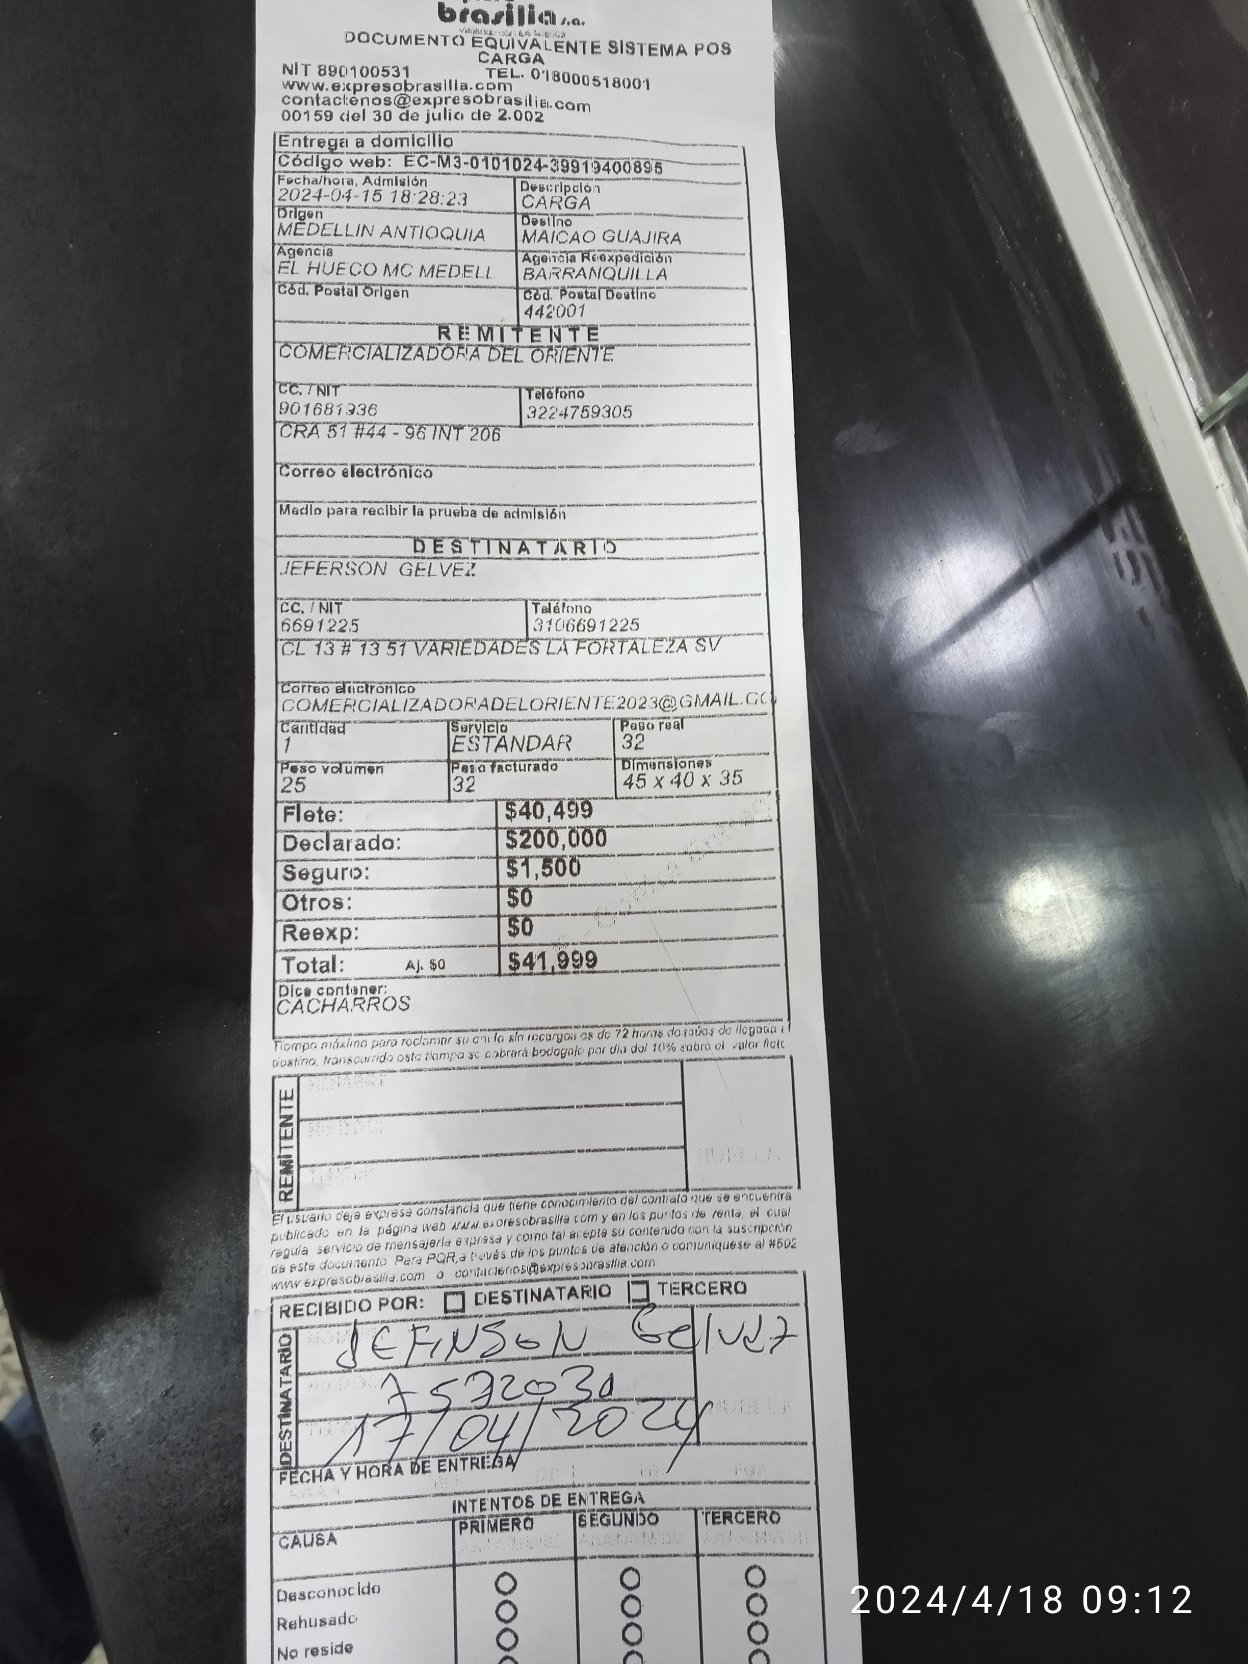 brasilia s.a.
DOCUMENTO EQUIVALENTE SISTEMA POS
CARGA
NIT 890100531 TEL. 018000518001
www.expresobrasilia.com
contactenos@expresobrasilia.com
00159 del 30 de julio de 2.002
Entrega a domicilio
Código web: EC-M3-0101024-39919400895
Fecha/hora, Admisión Descripción
2024-04-15 18:28:23 CARGA
Origen Destino
MEDELLIN ANTIOQUIA MAICAO GUAJIRA
Agencia Agencia Reexpedición
EL HUECO MC MEDELL BARRANQUILLA
Cód. Postal Origen Cód. Postal Destino
442001
REMITENTE
COMERCIALIZADORA DEL ORIENTE
CC. / NIT Teléfono
901681936 3224759305
CRA 51 #44 - 96 INT 206
Correo electrónico
Medio para recibir la prueba de admisión
DESTINATARIO
JEFERSON GELVEZ
CC. / NIT Teléfono
6691225 3106691225
CL 13 # 13 51 VARIEDADES LA FORTALEZA SV
Correo electrónico
COMERCIALIZADORADELORIENTE2023@GMAIL.CO
Cantidad Servicio Peso real
1 ESTANDAR 32
Peso volumen Peso facturado Dimensiones
25 32 45 x 40 x 35
Flete: $40,499
Declarado: $200,000
Seguro: $1,500
Otros: $0
Reexp: $0
Total: Aj. $0 $41,999
Dice contener:
CACHARROS
Tiempo máximo para reclamar su envío sin recargos es de 72 horas después de llegada
destino, transcurrido este tiempo se cobrará bodegaje por día del 10% sobre el valor flete
REMITENTE
El usuario deja expresa constancia que tiene conocimiento del contrato que se encuentra
publicado en la página web www.expresobrasilia.com y en los puntos de venta, el cual
regula servicio de mensajería expresa y como tal acepta su contenido con la suscripción
de este documento Para PQR, a través de los puntos de atención o comuníquese al #502
www.expresobrasilia.com o contactenos@expresobrasilia.com
RECIBIDO POR: DESTINATARIO TERCERO
DESTINATARIO
JEFINSON Gelvez
7572030
17/04/2024
FECHA Y HORA DE ENTREGA
INTENTOS DE ENTREGA
CAUSA PRIMERO SEGUNDO TERCERO
Desconocido
Rehusado
No reside
2024/4/18 09:12